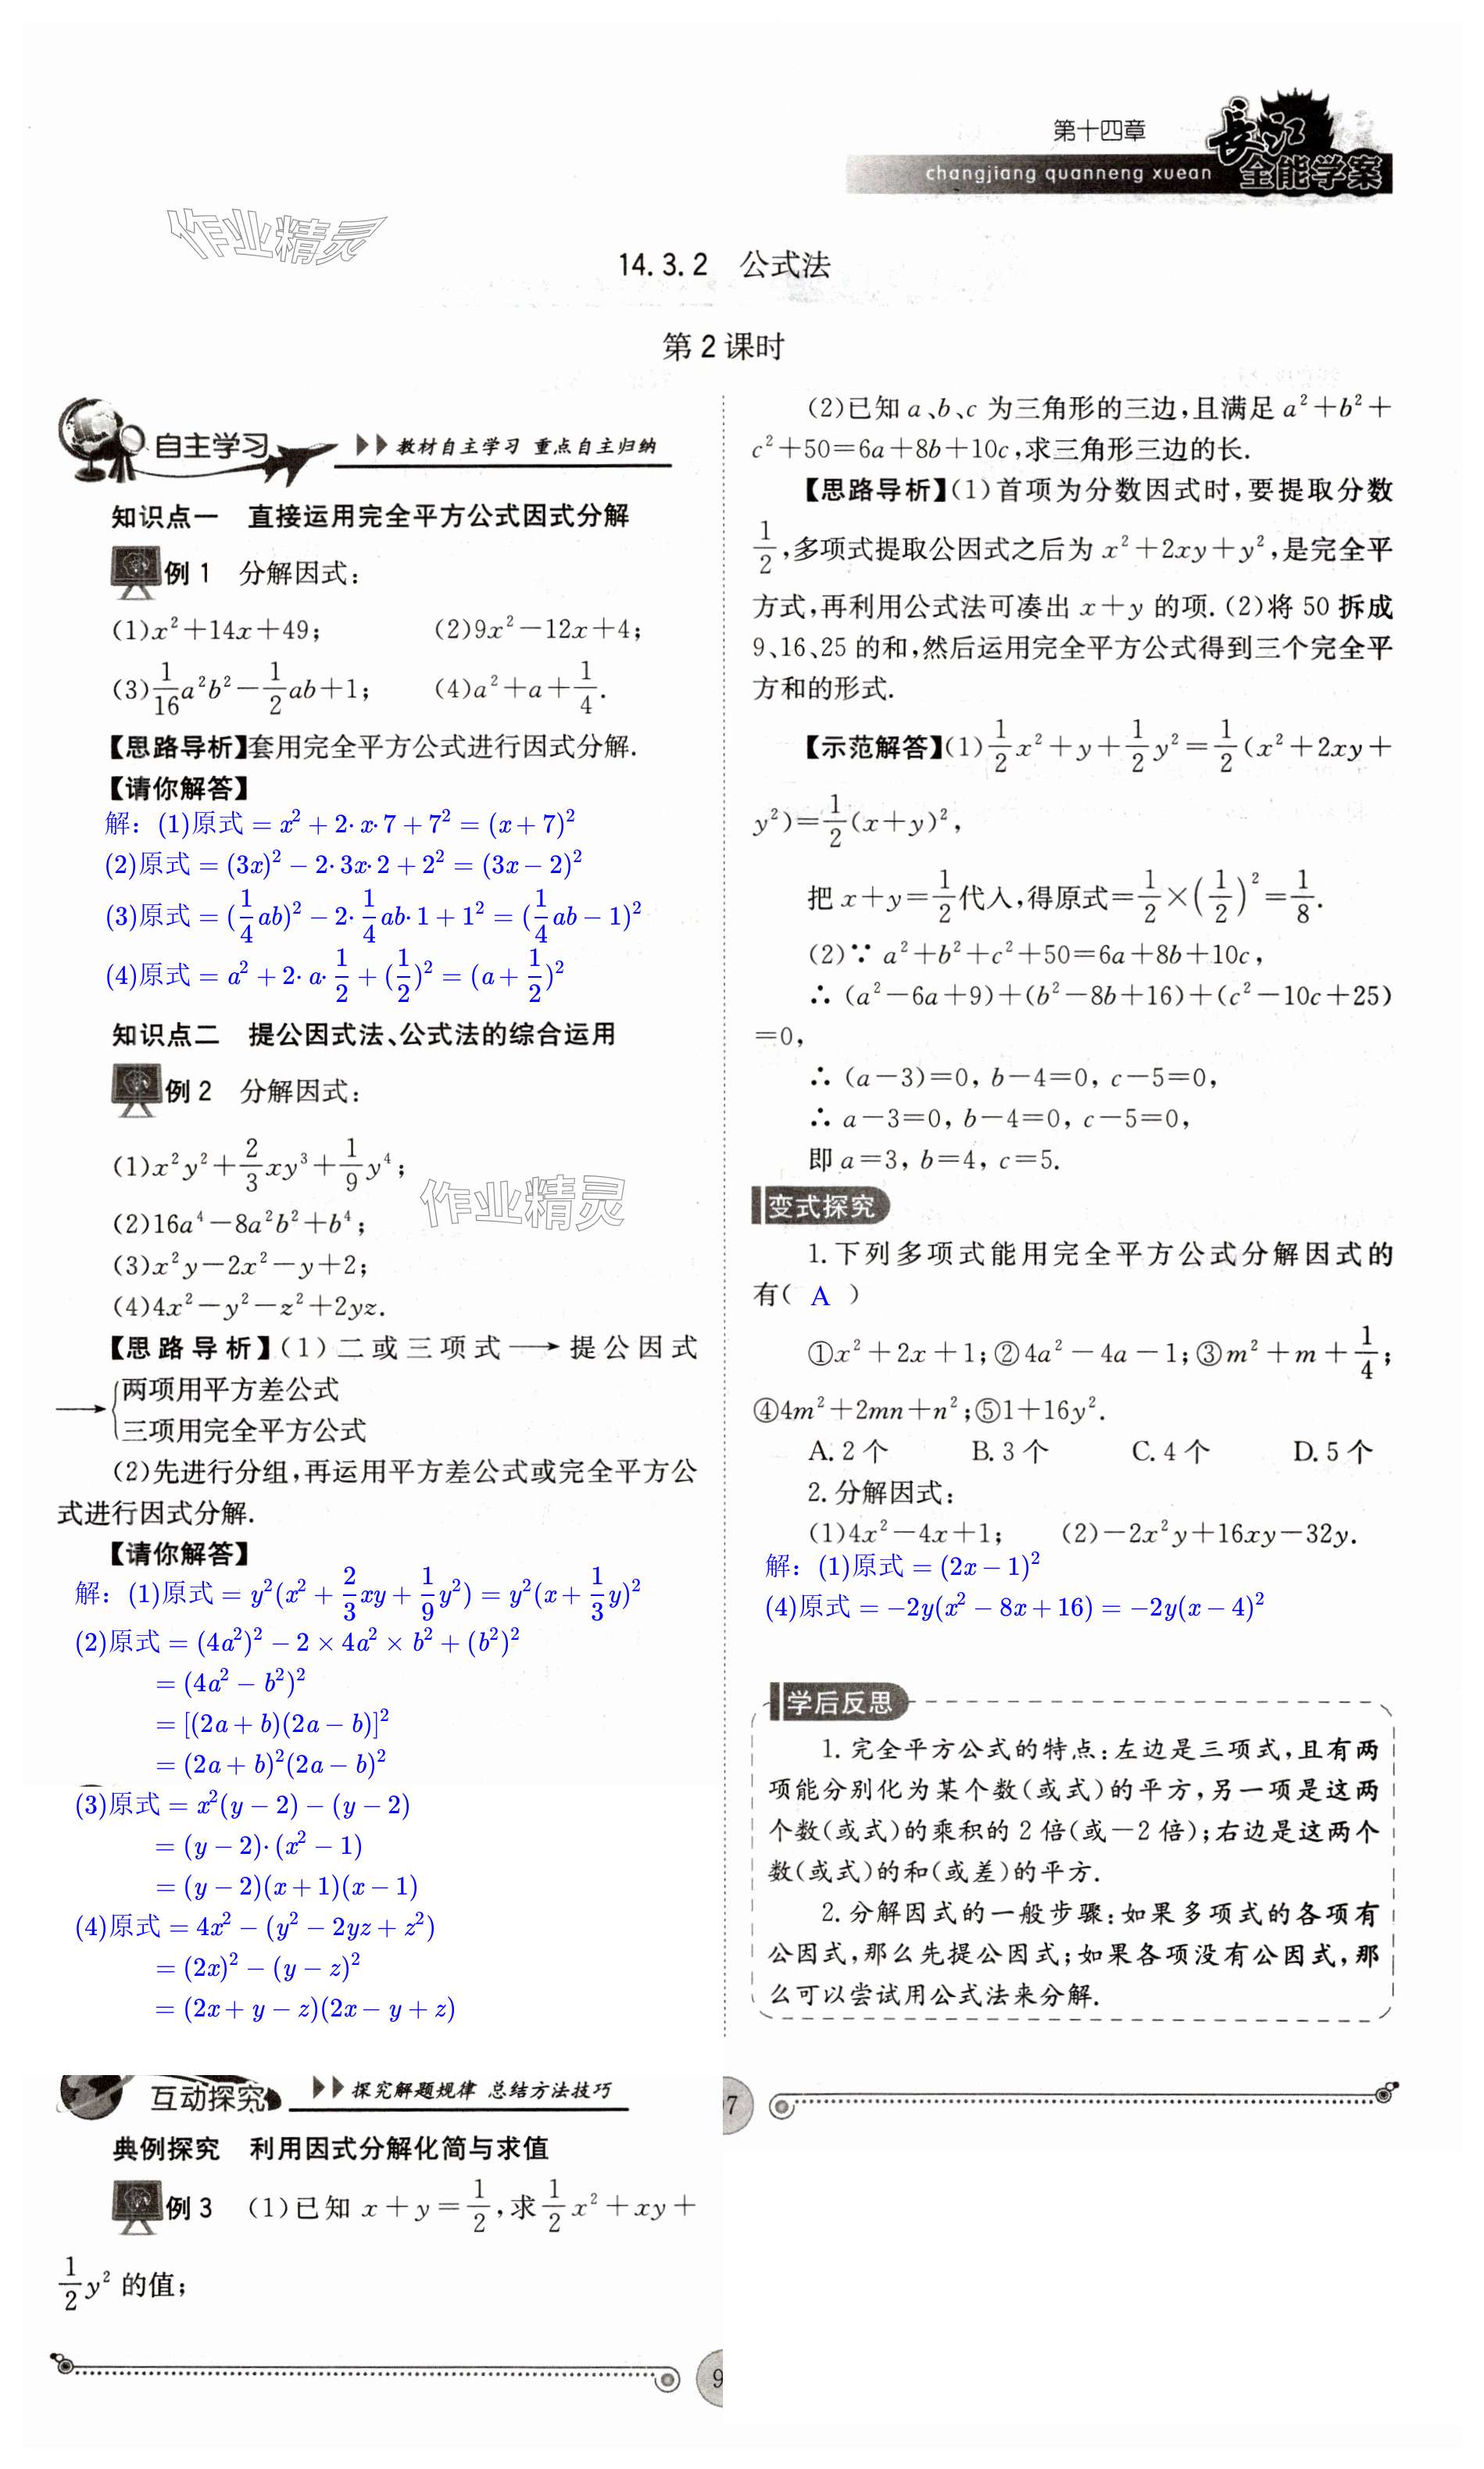 第十四章
长江
changjiang quanneng xuean
全能学案
作业精灵
14.3.2 公式法
第2课时
自主学习 教材自主学习 重点自主归纳
知识点一 直接运用完全平方公式因式分解
例1 分解因式:
(1)x²+14x+49; (2)9x²-12x+4;
(3)1/16a²b²-1/2ab+1; (4)a²+a+1/4.
【思路导析】套用完全平方公式进行因式分解.
【请你解答】
解：(1)原式 = x² + 2·x·7 + 7² = (x + 7)²
(2)原式 = (3x)² - 2·3x·2 + 2² = (3x - 2)²
(3)原式 = (1/4ab)² - 2·1/4ab·1 + 1² = (1/4ab - 1)²
(4)原式 = a² + 2·a·1/2 + (1/2)² = (a + 1/2)²
知识点二 提公因式法、公式法的综合运用
例2 分解因式:
(1)x²y²+2/3xy³+1/9y⁴;
作业精灵
(2)16a⁴-8a²b²+b⁴;
(3)x²y-2x²-y+2;
(4)4x²-y²-z²+2yz.
【思路导析】(1)二或三项式⟶提公因式
⟶{两项用平方差公式
三项用完全平方公式
(2)先进行分组,再运用平方差公式或完全平方公
式进行因式分解.
【请你解答】
解：(1)原式 = y²(x² + 2/3xy + 1/9y²) = y²(x + 1/3y)²
(2)原式 = (4a²)² - 2 × 4a² × b² + (b²)²
= (4a² - b²)²
= [(2a + b)(2a - b)]²
= (2a + b)²(2a - b)²
(3)原式 = x²(y - 2) - (y - 2)
= (y - 2)·(x² - 1)
= (y - 2)(x + 1)(x - 1)
(4)原式 = 4x² - (y² - 2yz + z²)
= (2x)² - (y - z)²
= (2x + y - z)(2x - y + z)
互动探究 探究解题规律 总结方法技巧
典例探究 利用因式分解化简与求值
例3 (1)已知 x+y=1/2,求1/2x²+xy+
1/2y² 的值;
9
(2)已知 a、b、c 为三角形的三边,且满足 a²+b²+
c²+50=6a+8b+10c,求三角形三边的长.
【思路导析】(1)首项为分数因式时,要提取分数
1/2,多项式提取公因式之后为 x²+2xy+y²,是完全平
方式,再利用公式法可凑出 x+y 的项.(2)将 50 拆成
9、16、25 的和,然后运用完全平方公式得到三个完全平
方和的形式.
【示范解答】(1)1/2x²+y+1/2y²=1/2(x²+2xy+
y²)=1/2(x+y)²,
把 x+y=1/2代入,得原式=1/2×(1/2)²=1/8.
(2)∵ a²+b²+c²+50=6a+8b+10c,
∴ (a²-6a+9)+(b²-8b+16)+(c²-10c+25)
=0,
∴ (a-3)=0, b-4=0, c-5=0,
∴ a-3=0, b-4=0, c-5=0,
即 a=3, b=4, c=5.
变式探究
1.下列多项式能用完全平方公式分解因式的
有( A )
①x²+2x+1;②4a²-4a-1;③m²+m+1/4;
④4m²+2mn+n²;⑤1+16y².
A.2个 B.3个 C.4个 D.5个
2.分解因式:
(1)4x²-4x+1; (2)-2x²y+16xy-32y.
解：(1)原式 = (2x - 1)²
(4)原式 = -2y(x² - 8x + 16) = -2y(x - 4)²
学后反思
1.完全平方公式的特点:左边是三项式,且有两
项能分别化为某个数(或式)的平方,另一项是这两
个数(或式)的乘积的2倍(或-2倍);右边是这两个
数(或式)的和(或差)的平方.
2.分解因式的一般步骤:如果多项式的各项有
公因式,那么先提公因式;如果各项没有公因式,那
么可以尝试用公式法来分解.
7